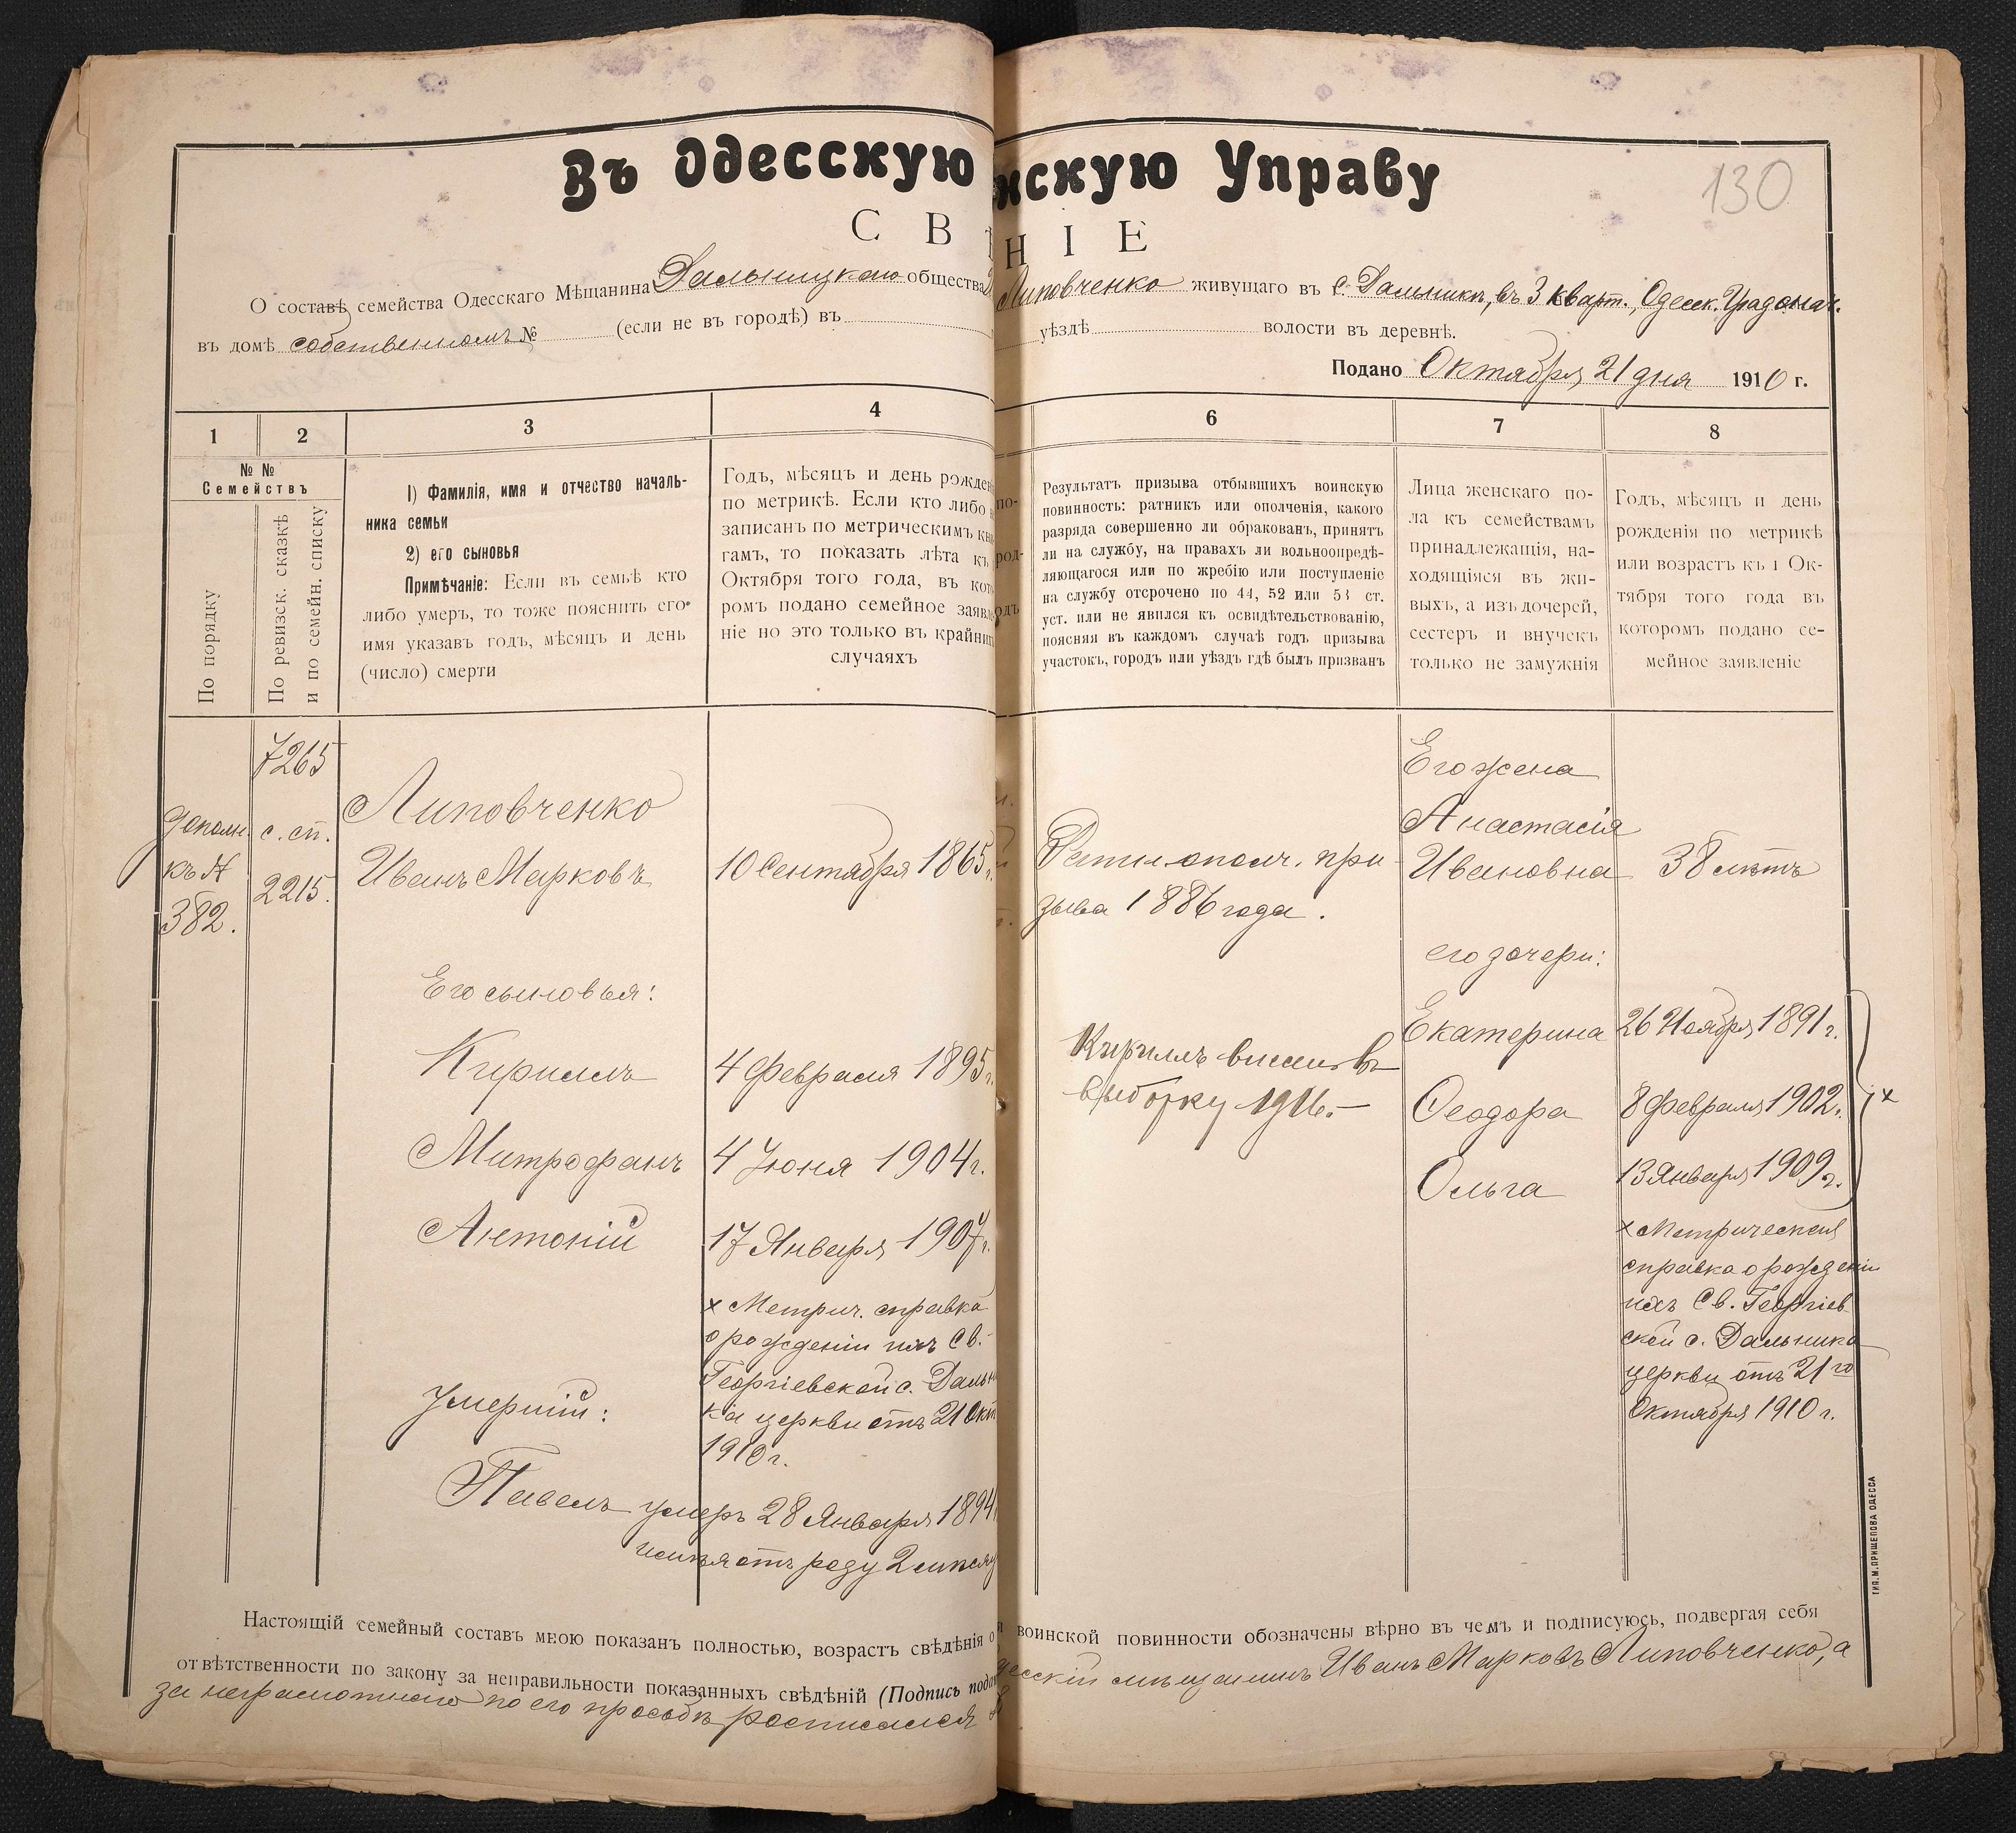 Въ Одесскую нскую Управу
130
С В НІЕ
О составѣ семейства Одесскаго Мѣщанина Дальницкаго общества Липовченко живущаго въ с. Дальникѣ, въ 3 кварт., Одесск. Градонач.
въ домѣ собственномъ № (если не въ городѣ) въ уѣздѣ волости въ деревнѣ.
Подано Октября 21 дня 1910 г.
1 2 3 4 6 7 8
№ №
Семействъ
По порядку
По ревизск. сказкѣ
и по семейн. списку
1) Фамилія, имя и отчество началь-
ника семьи
2) его сыновья
Примѣчаніе: Если въ семьѣ кто
либо умеръ, то тоже пояснить его
имя указавъ годъ, мѣсяцъ и день
(число) смерти
Годъ, мѣсяцъ и день рожден
по метрикѣ. Если кто либо
записанъ по метрическимъ кни
гамъ, то показать лѣта къ
Октября того года, въ кот
ромъ подано семейное заявле
ніе но это только въ крайни
случаяхъ
по-
род-
одъ
Результатъ призыва отбывшихъ воинскую
повинность: ратникъ или ополченія, какого
разряда совершенно ли обракованъ, принятъ
ли на службу, на правахъ ли вольноопредѣ-
ляющагося или по жребію или поступленіе
на службу отсрочено по 44, 52 или 53 ст.
уст. или не явился къ освидѣтельствованію,
поясняя въ каждомъ случаѣ годъ призыва
участокъ, городъ или уѣздъ гдѣ былъ призванъ
Лица женскаго по-
ла къ семействамъ
принадлежащія, на-
ходящіяся въ жи-
выхъ, а изъ дочерей,
сестеръ и внучекъ
только не замужнія
Годъ, мѣсяцъ и день
рожденія по метрикѣ
или возрастъ къ 1 Ок-
тября того года въ
которомъ подано се-
мейное заявленіе
дополн.
къ №
382.
7265
с. сп.
2215.
Липовченко
Иванъ Марковъ
10 Сентября 1865 г.
Ратн. ополч. при
зыва 1886 года.
Его жена
Анастасія
Ивановна
38 лѣтъ
Его сыновья:
Кириллъ 4 Февраля 1895 г.
Митрофанъ 4 Іюня 1904 г.
Антоній 17 Января 1907 г.
х Метрич. справка
о рожденіи ихъ Св.-
Георгіевской с. Дальн
ка церкви отъ 21 Окт
1910 г.
Умершій:
Павелъ умеръ 28 Января 1894
имѣя отъ роду 2 мѣсяц
Кириллъ внесенъ въ
выборку 1916.-
его дочери:
Екатерина 26 Ноября 1891 г.
Ѳеодора 8 Февраля 1902 г.
Ольга 13 Января 1909 г.
х
х Метрическая
справка о рожденіи
ихъ Св. Георгіев
ской с. Дальника
церкви отъ 21 го
Октября 1910 г.
Настоящій семейный составъ мною показанъ полностью, возрастъ свѣдѣнія о воинской повинности обозначены вѣрно въ чемъ и подписуюсь, подвергая себя
отвѣтственности по закону за неправильности показанныхъ свѣдѣній (Подпись пода десскій мѣщанинъ Иванъ Марковъ Липовченко, а
за неграмотнаго по его просьбѣ росписался
ТИП. М. ПРИЩЕПОВА ОДЕССА